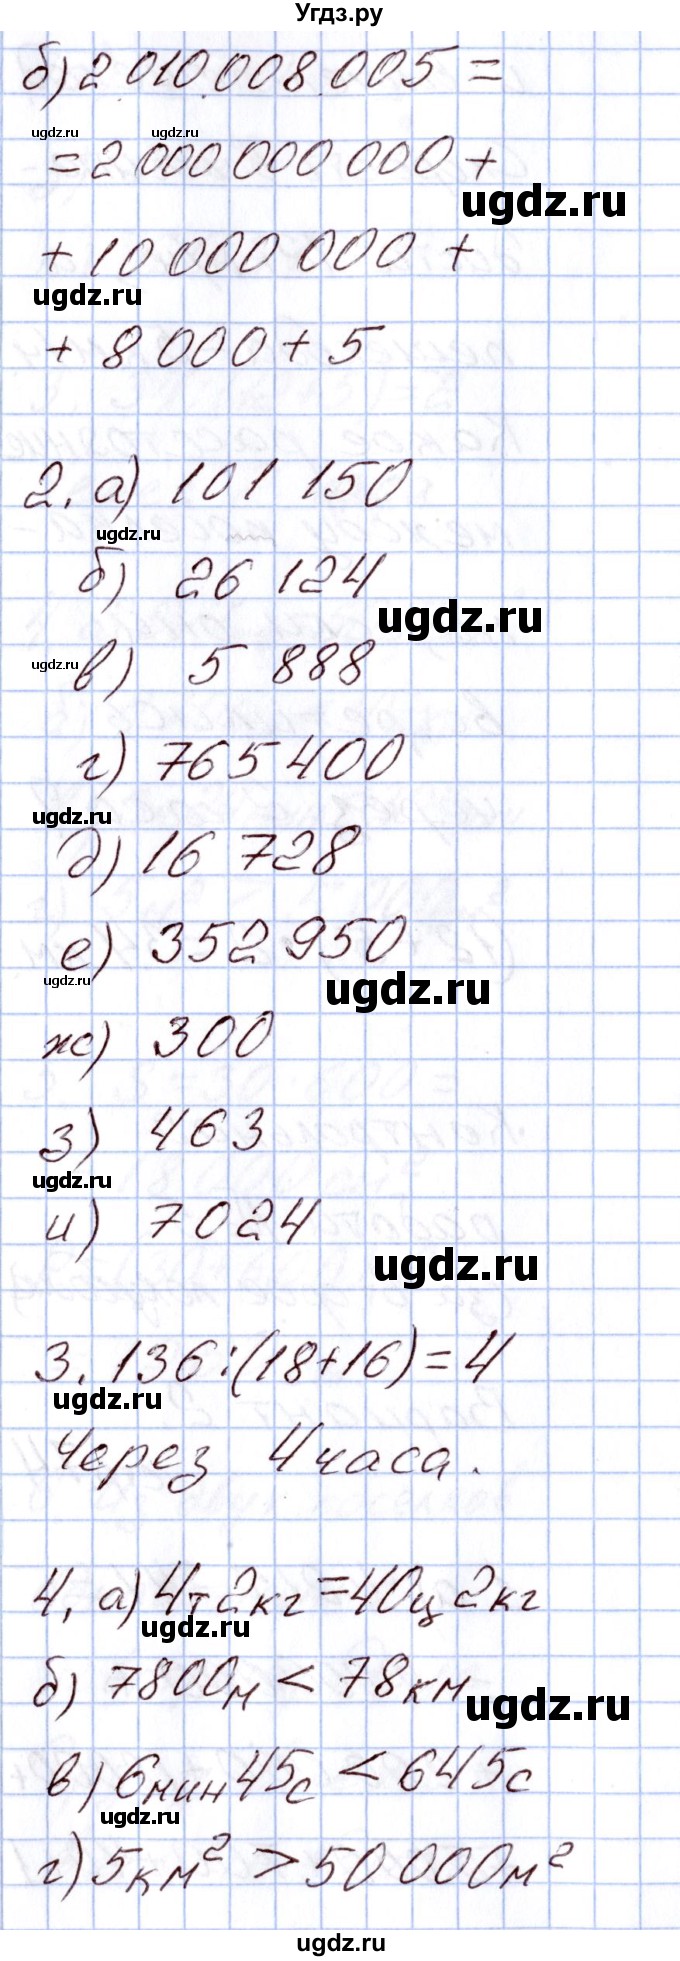 Угдз.ру
б) 2 010 008 005 =
ugdz.ru ugdz.ru
= 2 000 000 000 +
ugdz.ru
+ 10 000 000 +
ugdz.ru
+ 8 000 + 5
2. а) 101 150
ugdz.ru
б) 26 124
ugdz.ru
ugdz.ru
в) 5 888
г) 765 400
ugdz.ru
д) 16 728
е) 352 950
ugdz.ru
ugdz.ru
ж) 300
з) 463
ugdz.ru
и) 7024
ugdz.ru
3. 136:(18+16)=4
ugdz.ru
Через 4 часа.
4. а) 4т2кг=40ц2кг
ugdz.ru
б) 7800м < 78км
ugdz.ru
в) 6мин45с < 645с
ugdz.ru
г) 5км² > 50 000м²
ugdz.ru